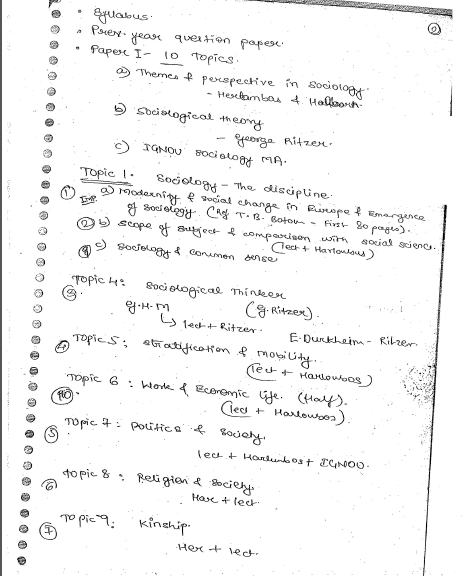 • Syllabus.
• Prev. year question paper.
• Paper I - 10 Topics.
a) Themes & perspective in sociology.
- Herlambos & Halborn.
b) Sociological theory
- George Ritzer.
c) IGNOU sociology MA.
Topic 1. Sociology - The discipline.
① a) Modernity & social change in Europe & Emergence
of sociology (Ref T. B. Botom - First 80 pages).
② b) scope of subject & comparison with social science.
(lect + Harlombos)
c) Sociology & common sense
Topic 4: Sociological Thinker
③. (G. Ritzer).
G. H. M
↳ lect + Ritzer.
E. Durkheim - Ritzer.
④ Topic 5; stratification & mobility.
(lect + Harlombos)
Topic 6 : Work & Economic life. (Half).
⑩. (lect + Harlombos)
Topic 7 : Politics & Society.
⑤
lect + Harlumbos + IGNOU.
Topic 8 : Religion & Society.
⑥ Har + lect.
Topic 9: Kinship.
⑦
Her + lect.